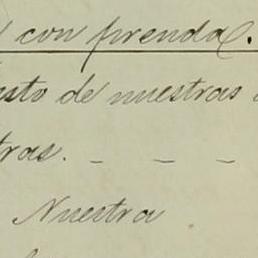 con prenda.
sto de nuestras
ras. — — —
Nuestra